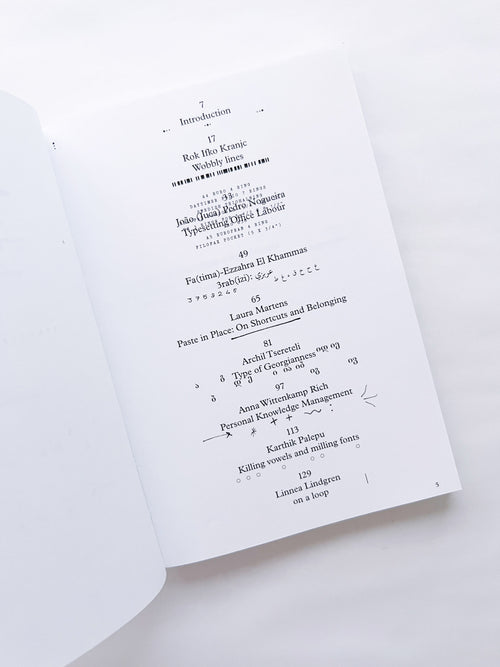 7
Introduction
17
Rok Ifko Kranjc
Wobbly lines
A6 EURO 6 RING
33
João (Juca) Pedro Nogueira
Typesetting Office Labour
A5 EUROPEAN 6 RING
FILOFAX POCKET (5 X 3/4")
49
Fa(tima)-Ezzahra El Khammas
3rab(izi): عربيزي
3 7 9 5 2 4 6
65
Laura Martens
Paste in Place: On Shortcuts and Belonging
81
Archil Tsereteli
Type of Georgianness
97
Anna Wittenkamp Rich
Personal Knowledge Management
113
Karthik Palepu
Killing vowels and milling fonts
129
Linnea Lindgren
on a loop
5